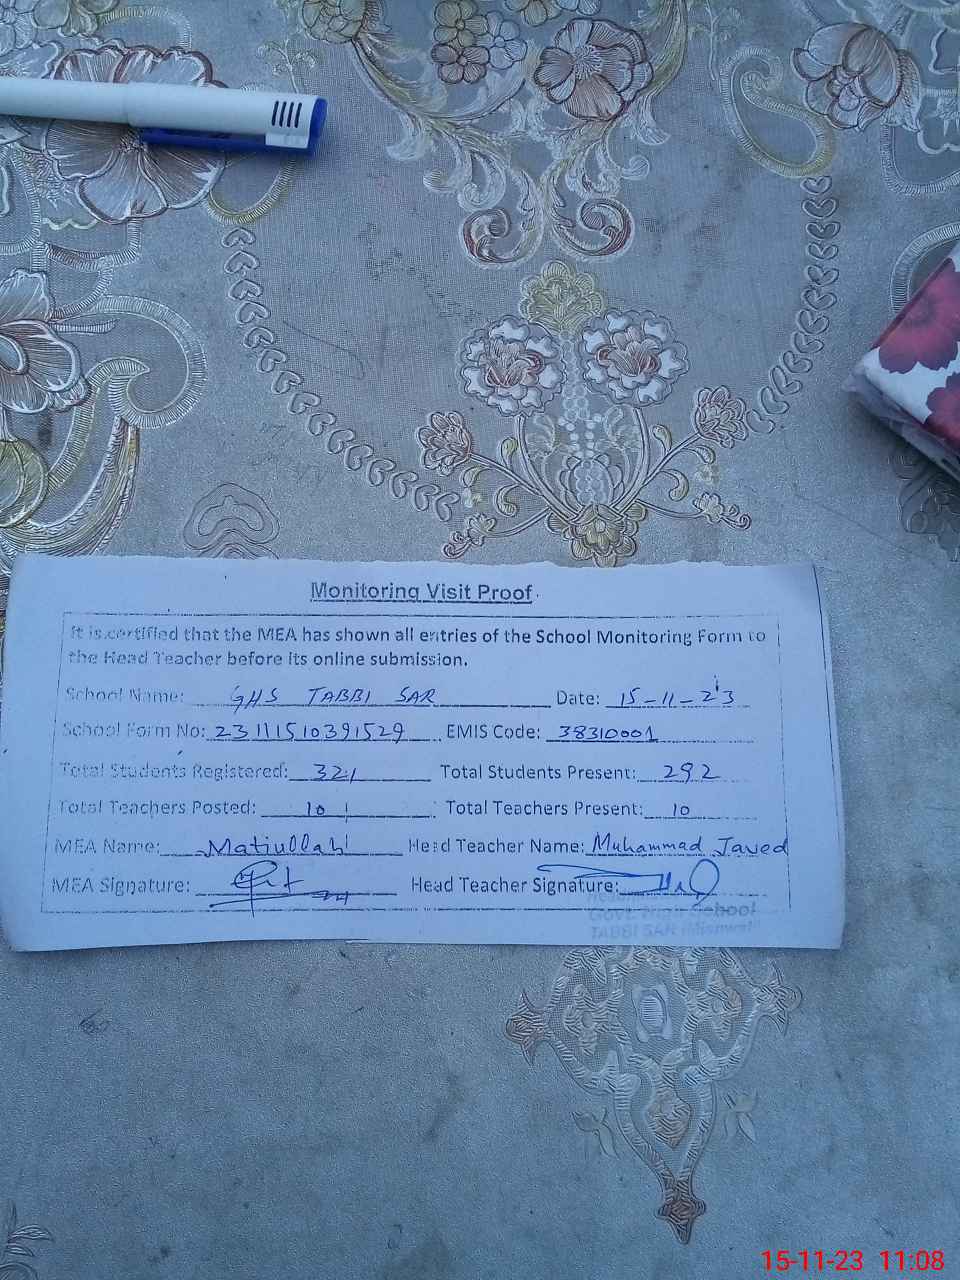 Monitoring Visit Proof.
It is certified that the MEA has shown all entries of the School Monitoring Form to
the Head Teacher before its online submission.
School Name: GHS TABBI SAR Date: 15-11-23
School Form No: 23111510391529 EMIS Code: 38310001
Total Students Registered: 321 Total Students Present: 292
Total Teachers Posted: 10 Total Teachers Present: 10
MEA Name: Matiullah Head Teacher Name: Muhammad Javed
MEA Signature: Head Teacher Signature:
Govt. High School
TABBI SAR (Mianwali)
15-11-23 11:08